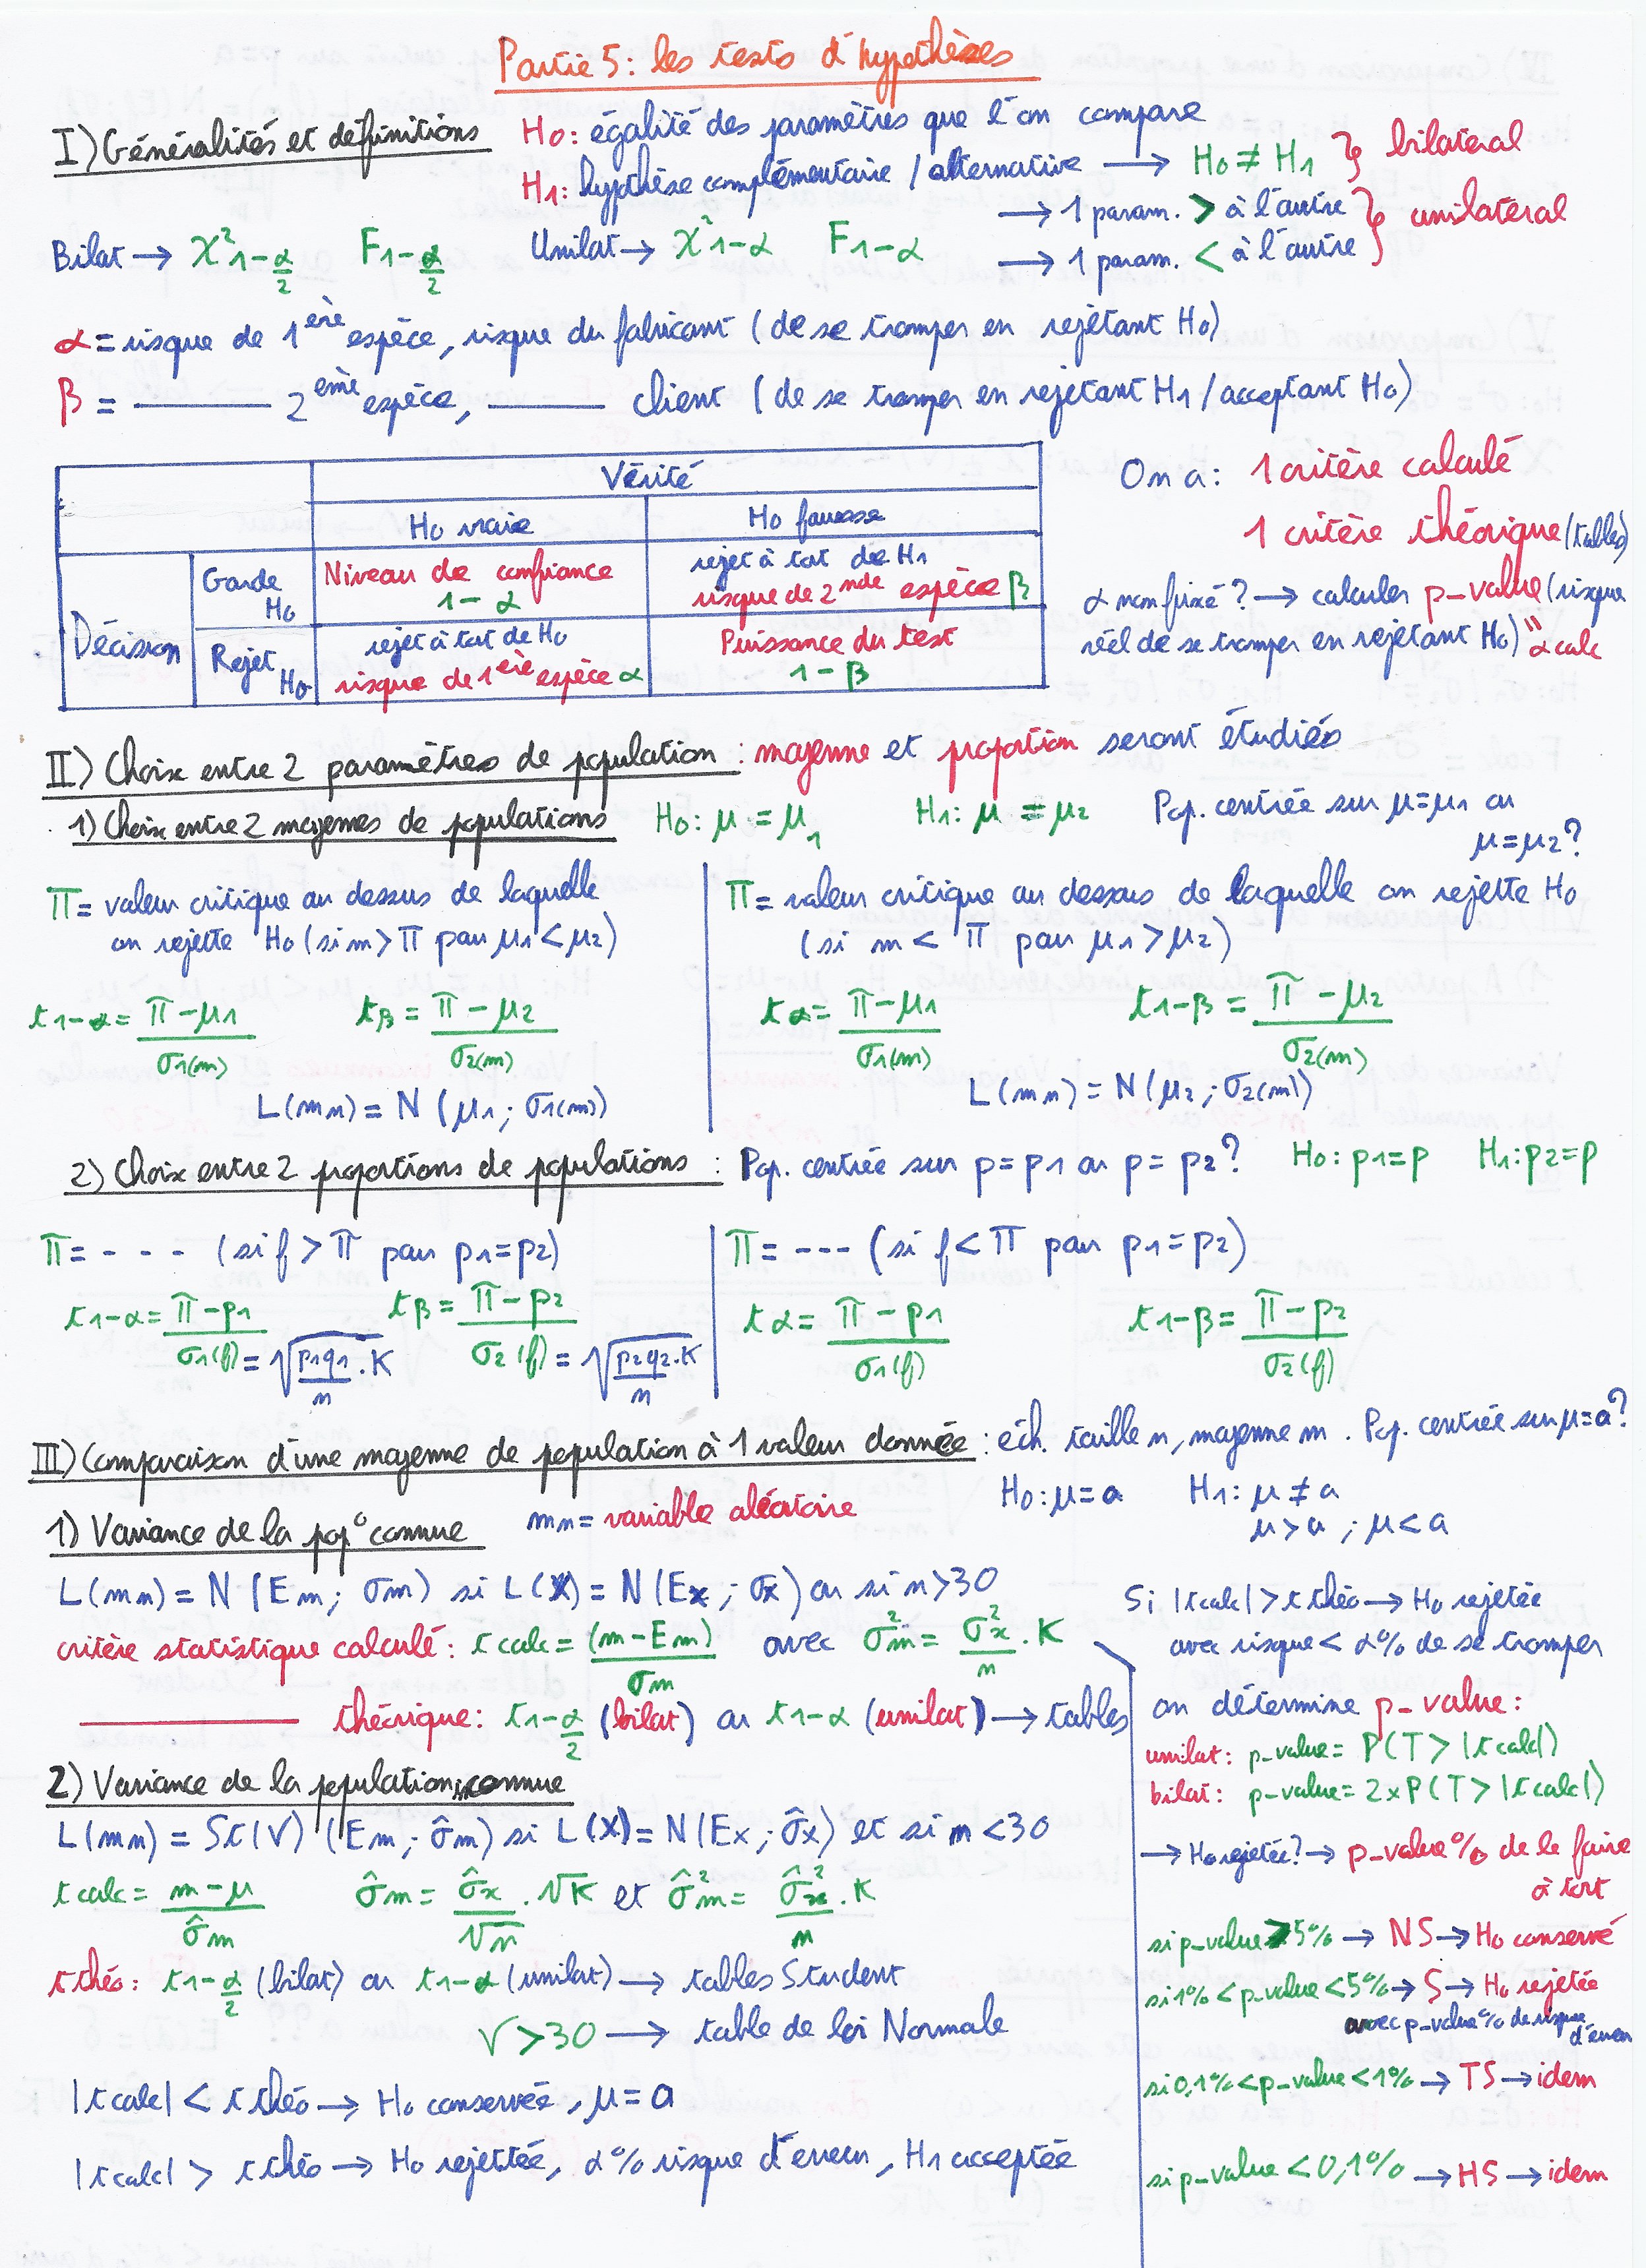 Partie 5: les tests d'hypothèses
I) Généralités et définitions
H0: égalité des paramètres que l'on compare
H1: hypthèse complémentaire / alternative → H0 ≠ H1 } bilatéral
→ 1 param. > à l'autre } unilatéral
→ 1 param. < à l'autre
Bilat → χ²1-α/2 F1-α/2 Unilat → χ²1-α F1-α
α = risque de 1ère espèce, risque du fabricant (de se tromper en rejetant H0)
β = ——— 2ème espèce, ——— client (de se tromper en rejetant H1 / acceptant H0)
Vérité
H0 vraie H0 fausse
Décision
Garde H0
Niveau de confiance 1-α
rejet à tort de H1 risque de 2nde espèce β
Rejet H0
rejet à tort de H0 risque de 1ère espèce α
Puissance du test 1-β
On a: 1 critère calculé
1 critère théorique (tables)
α non fixé? → calculer p-value (risque
réel de se tromper en rejetant H0) " α calc
II) Choix entre 2 paramètres de population : moyenne et proportion seront étudiés
1) Choix entre 2 moyennes de populations H0: μ = μ1 H1: μ = μ2 Pop. centrée sur μ=μ1 ou
μ=μ2?
Π = valeur critique au dessus de laquelle
on rejette H0 (si m > Π pour μ1 < μ2)
t1-α = (Π-μ1)/σ1(m) tβ = (Π-μ2)/σ2(m)
L(mn) = N (μ1; σ1(m))
Π = valeur critique au dessus de laquelle on rejette H0
(si m < Π pour μ1 > μ2)
tα = (Π-μ1)/σ1(m) t1-β = (Π-μ2)/σ2(m)
L(mn) = N (μ2; σ2(m))
2) Choix entre 2 proportions de populations : Pop. centrée sur p=p1 ou p=p2? H0: p1=p H1: p2=p
Π = - - - (si f > Π pour p1=p2)
t1-α = (Π-p1)/σ1(f) = √(p1q1/n . K) tβ = (Π-p2)/σ2(f) = √(p2q2/n . K)
Π = --- (si f < Π pour p1=p2)
tα = (Π-p1)/σ1(f) t1-β = (Π-p2)/σ2(f)
III) Comparaison d'une moyenne de population à 1 valeur donnée : éch. taille n, moyenne m. Pop. centrée sur μ=a?
H0: μ=a H1: μ≠a
μ>a ; μ<a
1) Variance de la pop° connue mn = variable aléatoire
L(mn) = N (Em; σm) si L(X) = N (Ex; σx) ou si n>30
critère statistique calculé: t calc = (m-Em)/σm avec σ²m = σ²x/n . K
——— théorique: t1-α/2 (bilat) ou t1-α (unilat) → tables
2) Variance de la population inconnue
L(mn) = St(V) (Em; σ̂m) si L(X) = N(Ex; σ̂x) et si n <30
t calc = (m-μ)/σ̂m σ̂m = σ̂x/√n . √K et σ̂²m = σ̂²x/n . K
t théo: t1-α/2 (bilat) ou t1-α (unilat) → tables Student
V >30 → table de loi Normale
|t calc| < t théo → H0 conservée, μ = a
|t calc| > t théo → H0 rejettée, α% risque d'erreur, H1 acceptée
Si |t calc| > t théo → H0 rejetée
avec risque < α% de se tromper
on détermine p-value:
unilat: p-value = P(T > |t calc|)
bilat: p-value = 2xP(T > |t calc|)
→ H0 rejetée? → p-value% de le faire
à tort
si p-value > 5% → NS → H0 conservé
si 1% < p-value < 5% → S → H0 rejetée
avec p-value% de risque
d'erreur
si 0,1% < p-value < 1% → TS → idem
si p-value < 0,1% → HS → idem